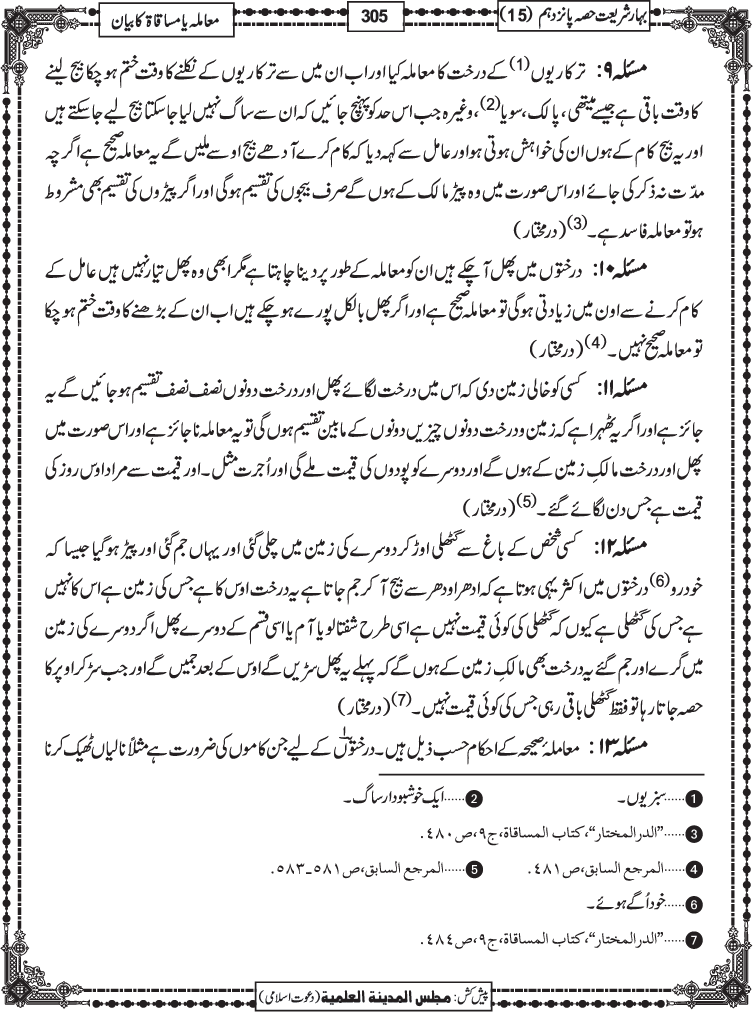 بہارِ شریعت حصہ پانزدہم (15)
305
معاملہ یا مساقاۃ کا بیان
مسئلہ ۹: ترکاریوں(1) کے درخت کا معاملہ کیا اور اب ان میں سے ترکاریوں کے نکلنے کا وقت ختم ہوچکا بیج لینے
کا وقت باقی ہے جیسے میتھی، پالک، سویا(2)، وغیرہ جب اس حد کو پہنچ جائیں کہ ان سے ساگ نہیں لیا جاسکتا بیج لیے جاسکتے ہیں
اور یہ بیج کام کے ہوں ان کی خواہش ہوتی ہو اور عامل سے کہہ دیا کہ کام کرے آدھے بیج اوسے ملیں گے یہ معاملہ صحیح ہے اگرچہ
مدّت نہ ذکر کی جائے اور اس صورت میں وہ پیڑ مالک کے ہوں گے صرف بیجوں کی تقسیم ہوگی اور اگر پیڑوں کی تقسیم بھی مشروط
ہو تو معاملہ فاسد ہے۔(3) (درمختار)
مسئلہ ۱۰: درختوں میں پھل آچکے ہیں ان کو معاملہ کے طور پر دینا چاہتا ہے مگر ابھی وہ پھل تیار نہیں ہیں عامل کے
کام کرنے سے اون میں زیادتی ہوگی تو معاملہ صحیح ہے اور اگر پھل بالکل پورے ہوچکے ہیں اب ان کے بڑھنے کا وقت ختم ہوچکا
تو معاملہ صحیح نہیں۔(4) (درمختار)
مسئلہ ۱۱: کسی کو خالی زمین دی کہ اس میں درخت لگائے پھل اور درخت دونوں نصف نصف تقسیم ہوجائیں گے یہ
جائز ہے اور اگر یہ ٹھہرا ہے کہ زمین و درخت دونوں چیزیں دونوں کے مابین تقسیم ہوں گی تو یہ معاملہ ناجائز ہے اور اس صورت میں
پھل اور درخت مالکِ زمین کے ہوں گے اور دوسرے کو پودوں کی قیمت ملے گی اور اُجرت مثل۔ اور قیمت سے مراد اوس روز کی
قیمت ہے جس دن لگائے گئے۔(5) (درمختار)
مسئلہ ۱۲: کسی شخص کے باغ سے گٹھلی اوڑ کر دوسرے کی زمین میں چلی گئی اور یہاں جم گئی اور پیڑ ہوگیا جیسا کہ
خودرو(6) درختوں میں اکثر یہی ہوتا ہے کہ ادھر اودھر سے بیج آکر جم جاتا ہے یہ درخت اوس کا ہے جس کی زمین ہے اس کا نہیں
ہے جس کی گٹھلی ہے کیوں کہ گٹھلی کی کوئی قیمت نہیں ہے اسی طرح شفتالو یا آم یا اسی قسم کے دوسرے پھل اگر دوسرے کی زمین
میں گرے اور جم گئے یہ درخت بھی مالکِ زمین کے ہوں گے کہ پہلے یہ پھل سڑیں گے اوس کے بعد جمیں گے اور جب سڑ کر اوپر کا
حصہ جاتا رہا تو فقط گٹھلی باقی رہی جس کی کوئی قیمت نہیں۔(7) (درمختار)
مسئلہ ۱۳: معاملۂ صحیحہ کے احکام حسب ذیل ہیں۔ درختوں کے لیے جن کاموں کی ضرورت ہے مثلاً نالیاں ٹھیک کرنا
1 ......سبزیوں۔ 2 ......ایک خوشبودار ساگ۔
3 ......”الدرالمختار“، کتاب المساقاۃ، ج۹، ص۴۸۰.
4 ......المرجع السابق، ص۴۸۱. 5 ......المرجع السابق، ص۵۸۱-۵۸۳.
6 ......خود اُگے ہوئے۔
7 ......”الدرالمختار“، کتاب المساقاۃ، ج۹، ص۴۸۴.
پیش کش: مجلس المدینة العلمیة (دعوت اسلامی)